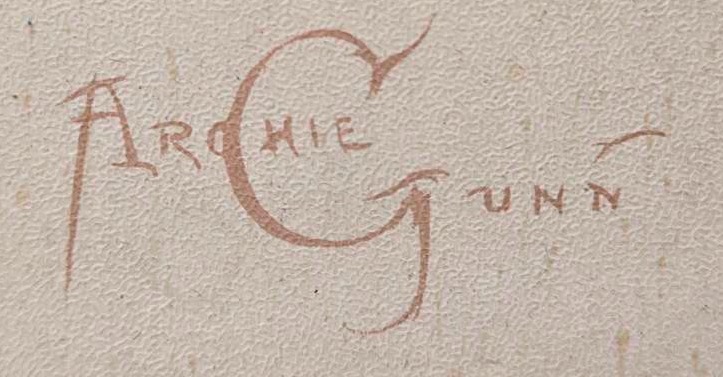 ARCHIE GUNN